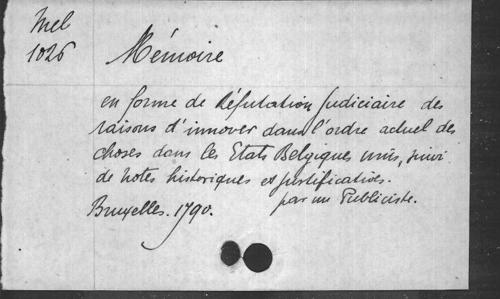 Mel
1026
Mémoire
en forme de Réfutation judiciaire des
raisons d'innover dans l'ordre actuel des
choses dans les Etats Belgiques unis, suivi
de notes historiques et justificatives.
par un Publiciste.
Bruxelles. 1790.